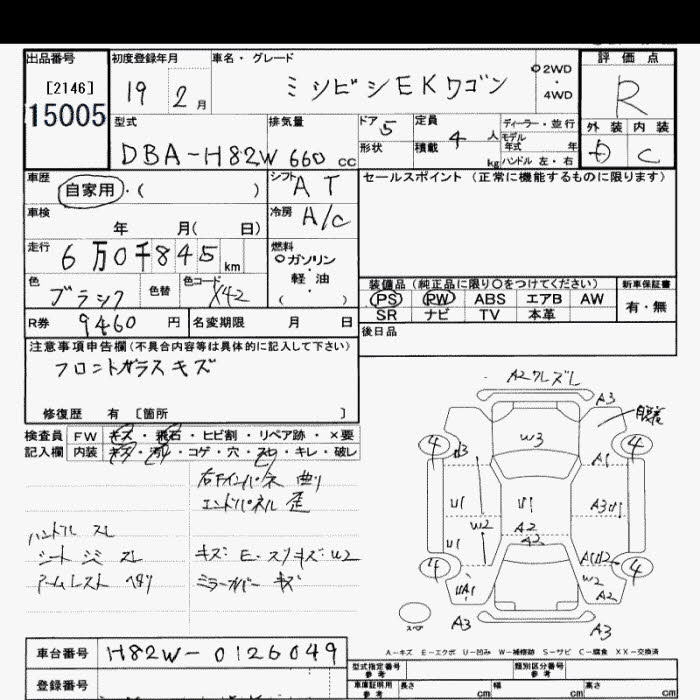 出品番号 初度登録年月 車名・グレード 評価点
[2146] 19 2月 ミツビシEKワゴン 2WD ・ 4WD R
15005
型式 排気量 ドア 5 定員 4人 ディーラー・並行 外装 内装
DBA-H82W 660cc 形状 積載 kg モデル年式 年 C
ハンドル 左・右
車歴 自家用・( ) シフト AT セールスポイント(正常に機能するものに限ります)
車検 年 月( 日) 冷房 A/C
走行 6万0千845km 燃料 ガソリン・軽油 ( )
色 ブラック 色替 色コード X42
装備品(純正品に限り○をつけてください) 新車保証書
PS PW ABS エアB AW 有・無
SR ナビ TV 本革
R券 9460円 名変期限 月 日 後日品
注意事項申告欄(不具合内容等は具体的に記入して下さい)
フロントガラスキズ
修復歴 有 [箇所 ]
検査員 FW キズ・飛石・ヒビ割・リペア跡・×要
記入欄 内装 キズ・汚レ・コゲ・穴・スレ・キレ・破レ
右Fインパネ 曲り
エンドパネル 歪
ハンドル スレ
シート シミ スレ キズ:E・スリキズ:W2
アームレスト ヘタリ ミラーカバー キズ
A3
W3
4 4
B3 A1
U1 U1 A3
W2 A2
U1 A2
4 4
W2
A2
スペア A3 A3
A-キズ E-エクボ U-凹み W-補修跡 S-サビ C-腐食 XX-交換済
車台番号 H82W-0126049
型式指定番号 参考 類別区分番号 参考
登録番号 車庫証明用 参考 長さ cm 幅 cm 高さ cm